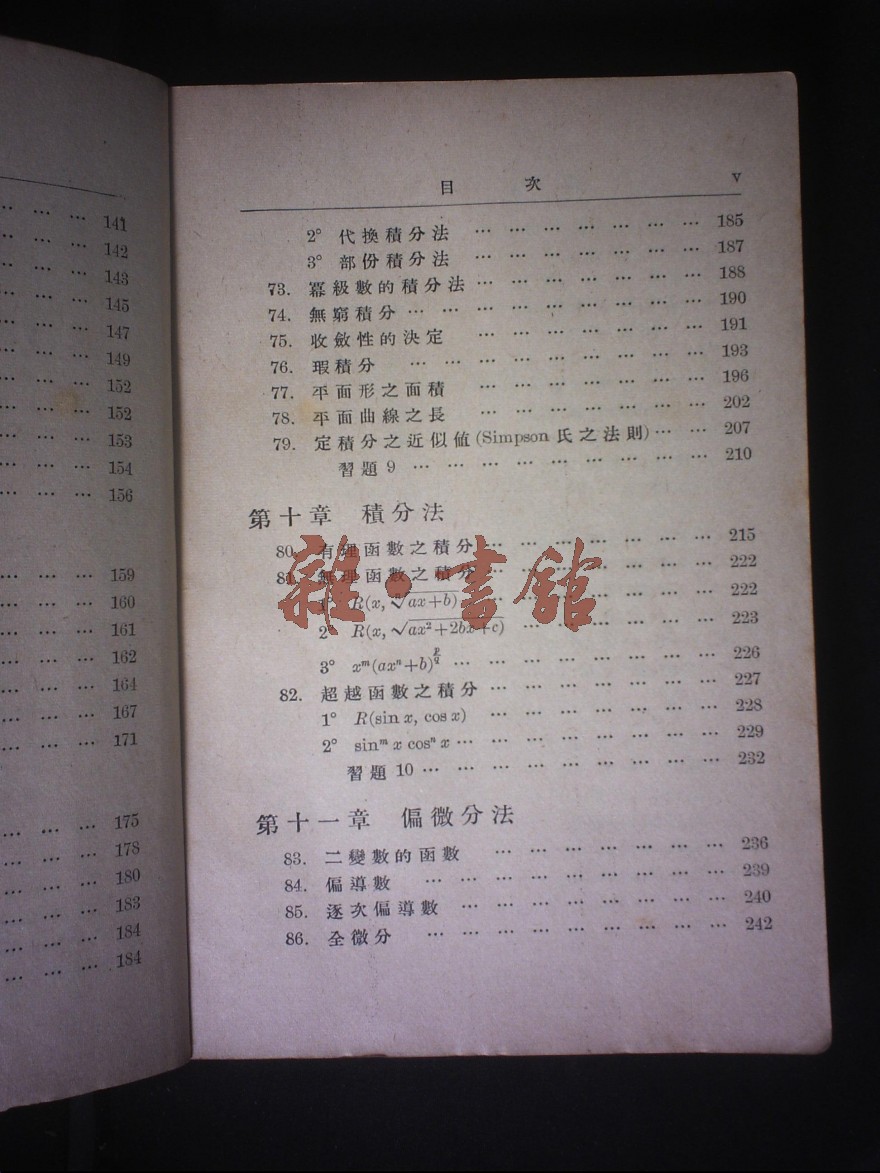 141
142
143
145
147
149
152
152
153
154
156
159
160
161
162
164
167
171
175
178
180
183
184
184
目 次 v
2° 代換積分法 … … … … … … … … 185
3° 部份積分法 … … … … … … … … 187
73. 冪級數的積分法 … … … … … … … … 188
74. 無窮積分 … … … … … … … … … … 190
75. 收斂性的決定 … … … … … … … … 191
76. 瑕積分 … … … … … … … … … … 193
77. 平面形之面積 … … … … … … … … 196
78. 平面曲線之長 … … … … … … … … 202
79. 定積分之近似値 (Simpson 氏之法則) … … 207
習題 9 … … … … … … … … … 210
第十章 積分法
80. 有理函數之積分 … … … … … … … … 215
81. 無理函數之積分 … … … … … … … … 222
1° R(x, ⁿ√ax+b) … … … … … … … … 222
2° R(x, √ax²+2bx+c) … … … … … … 223
3° xᵐ(axⁿ+b)^{p/q} … … … … … … … … 226
82. 超越函數之積分 … … … … … … … … 227
1° R(sin x, cos x) … … … … … … … 228
2° sinᵐ x cosⁿ x … … … … … … … … 229
習題 10 … … … … … … … … … 232
第十一章 偏微分法
83. 二變數的函數 … … … … … … … 236
84. 偏導數 … … … … … … … … … 239
85. 逐次偏導數 … … … … … … … … 240
86. 全微分 … … … … … … … … … 242
雜·書館